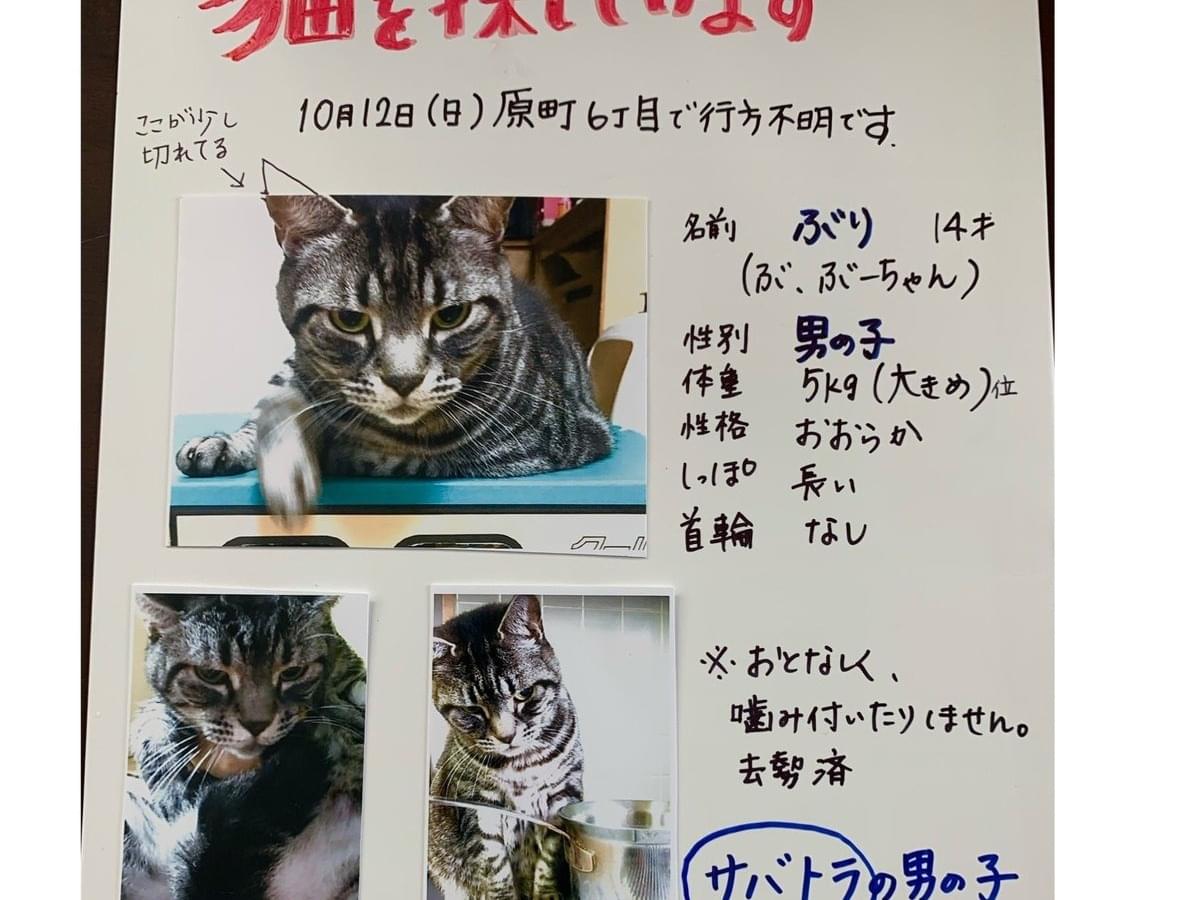 猫を探しています
10月12日(日)原町6丁目で行方不明です.
ここが少し
切れてる
名前 ぶり 14才
(ぶ、ぶーちゃん)
性別 男の子
体重 5kg(大きめ)位
性格 おおらか
しっぽ 長い
首輪 なし
※おとなしく、
噛み付いたりしません。
去勢済
サバトラの男の子